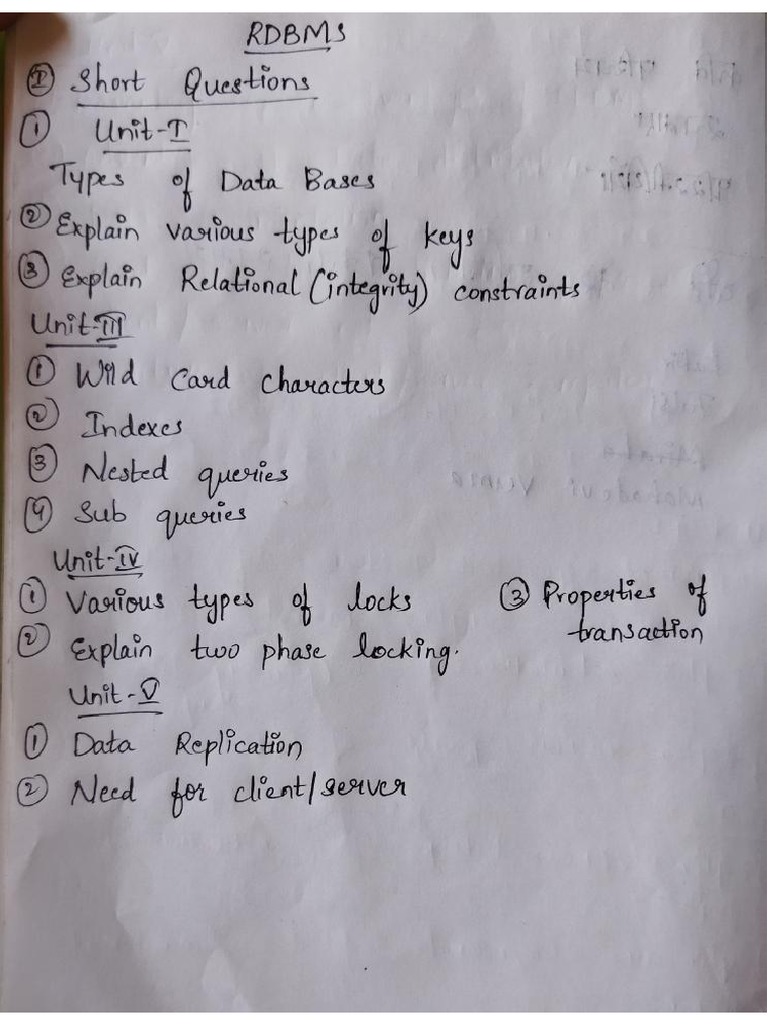 RDBMS
Ⓘ Short Questions
① Unit-I
Types of Data Bases
② Explain various types of keys
③ Explain Relational (integrity) constraints
Unit-III
① Wild Card characters
② Indexes
③ Nested queries
④ Sub queries
Unit-IV
① Various types of locks
② Explain two phase locking.
③ Properties of
transaction
Unit-V
① Data Replication
② Need for client/server